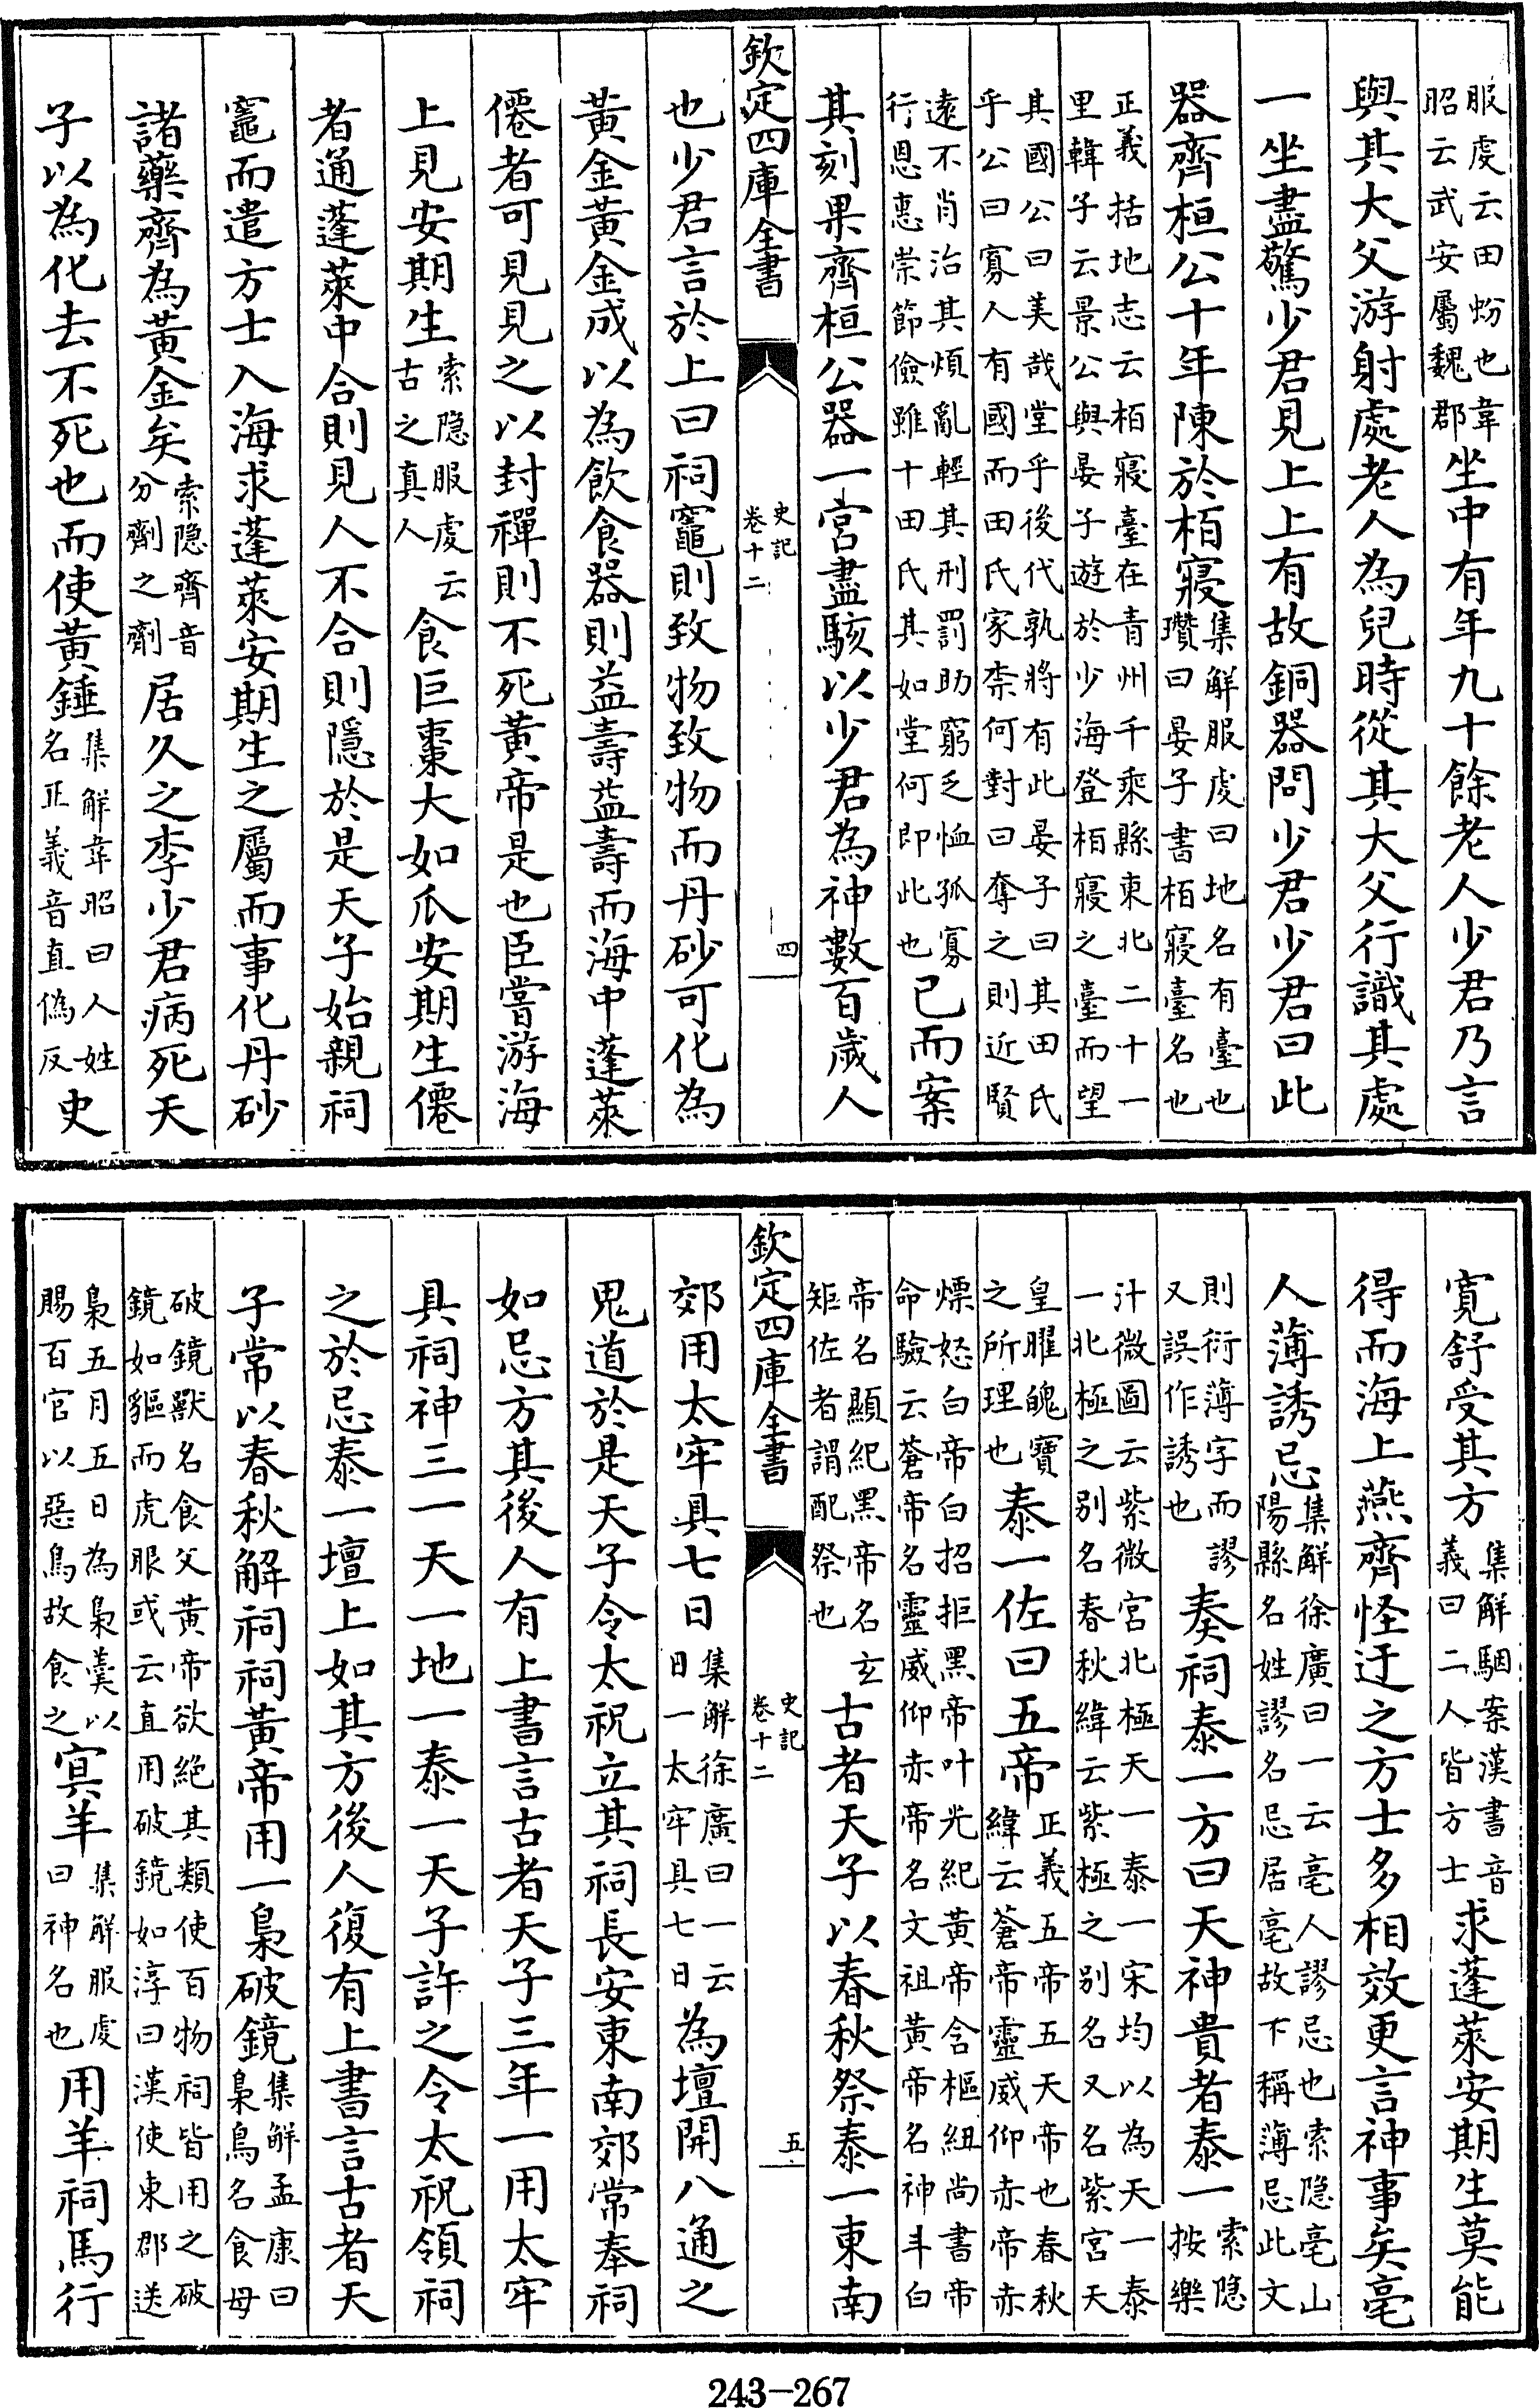 服虔云田蚡也韋昭云武安屬魏郡坐中有年九十餘老人少君乃言
與其大父游射處老人為兒時從其大父行識其處
一坐盡驚少君見上上有故銅器問少君少君曰此
器齊桓公十年陳於栢寢集解服虔曰地名有臺也瓚曰晏子書栢寢臺名也
正義括地志云栢寢臺在青州千乘縣東北二十一
里韓子云景公與晏子遊於少海登栢寢之臺而望
其國公曰美哉堂乎後代孰將有此晏子曰其田氏
乎公曰寡人有國而田氏家柰何對曰奪之則近賢
遠不肖治其煩亂輕其刑罰助窮乏恤孤寡
行恩惠崇節儉雖十田氏其如堂何即此也已而案
其刻果齊桓公器一宮盡駭以少君為神數百歲人
欽定四庫全書 史記卷十二 四
也少君言於上曰祠竈則致物致物而丹砂可化為
黃金黃金成以為飲食器則益壽益壽而海中蓬萊
僊者可見見之以封禪則不死黃帝是也臣嘗游海
上見安期生索隱服虔云古之真人食巨棗大如瓜安期生僊
者通蓬萊中合則見人不合則隱於是天子始親祠
竈而遣方士入海求蓬萊安期生之屬而事化丹砂
諸藥齊為黃金矣索隱齊音分劑之劑居久之李少君病死天
子以為化去不死也而使黃錘集解韋昭曰人姓名正義音直偽反史
寛舒受其方集解駰案漢書音義曰二人皆方士求蓬萊安期生莫能
得而海上燕齊怪迂之方士多相效更言神事矣亳
人薄誘忌集解徐廣曰一云亳人謬忌也索隱亳山陽縣名姓謬名忌居亳故下稱薄忌此文
則衍薄字而謬又誤作誘也奏祠泰一方曰天神貴者泰一索隱按樂
汁微圖云紫微宮北極天一泰一宋均以為天一泰
一北極之别名春秋緯云紫極之别名又名紫宮天
皇曜魄寶之所理也泰一佐曰五帝正義五帝五天帝也春秋緯云蒼帝靈威仰赤帝赤
熛怒白帝白招拒黑帝叶光紀黃帝含樞紐尚書帝
命驗云蒼帝名靈威仰赤帝名文祖黃帝名神斗白
帝名顯紀黑帝名玄矩佐者謂配祭也古者天子以春秋祭泰一東南
欽定四庫全書 史記卷十二 五
郊用太牢具七日集解徐廣曰一云日一太牢具七日為壇開八通之
鬼道於是天子令太祝立其祠長安東南郊常奉祠
如忌方其後人有上書言古者天子三年一用太牢
具祠神三一天一地一泰一天子許之令太祝領祠
之於忌泰一壇上如其方後人復有上書言古者天
子常以春秋解祠祠黃帝用一梟破鏡集解孟康曰梟鳥名食母
破鏡獸名食父黃帝欲絶其類使百物祠皆用之破
鏡如貙而虎眼或云直用破鏡如淳曰漢使東郡送
梟五月五日為梟羹以賜百官以惡鳥故食之㝠羊集解服虔曰神名也用羊祠馬行
243-267